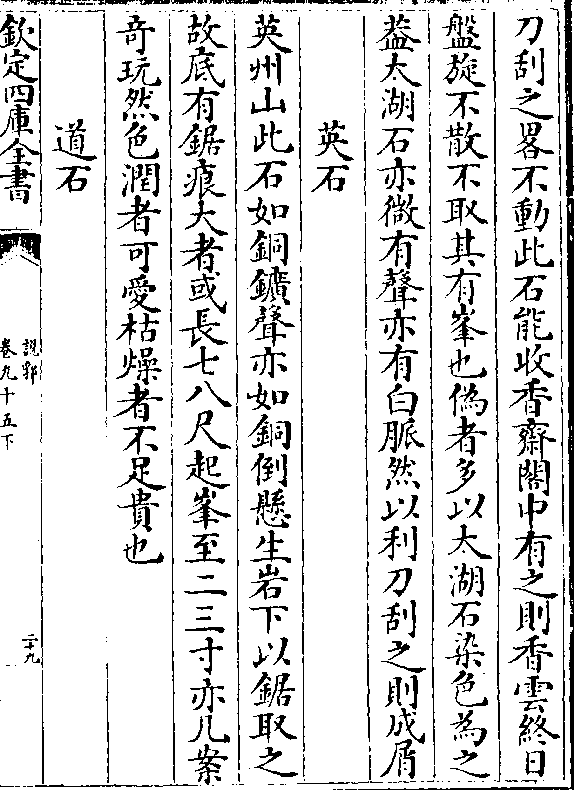 刀刮之畧不動此石能收香齋閣中有之則香雲終日
盤旋不散不取其有峯也偽者多以太湖石染色為之
葢太湖石亦微有聲亦有白脈然以利刀刮之則成屑
英石
英州山此石如銅鑛聲亦如銅倒懸生岩下以鋸取之
故底有鋸痕大者或長七八尺起峯至二三寸亦几案
竒玩然色潤者可愛枯燥者不足貴也
道石
欽定四庫全書
說郛
卷九十五下
二十九